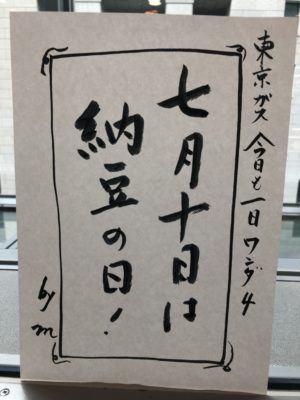 東京ガス 今日も一日ワンダ4
七月十日は
納豆の日!
by m